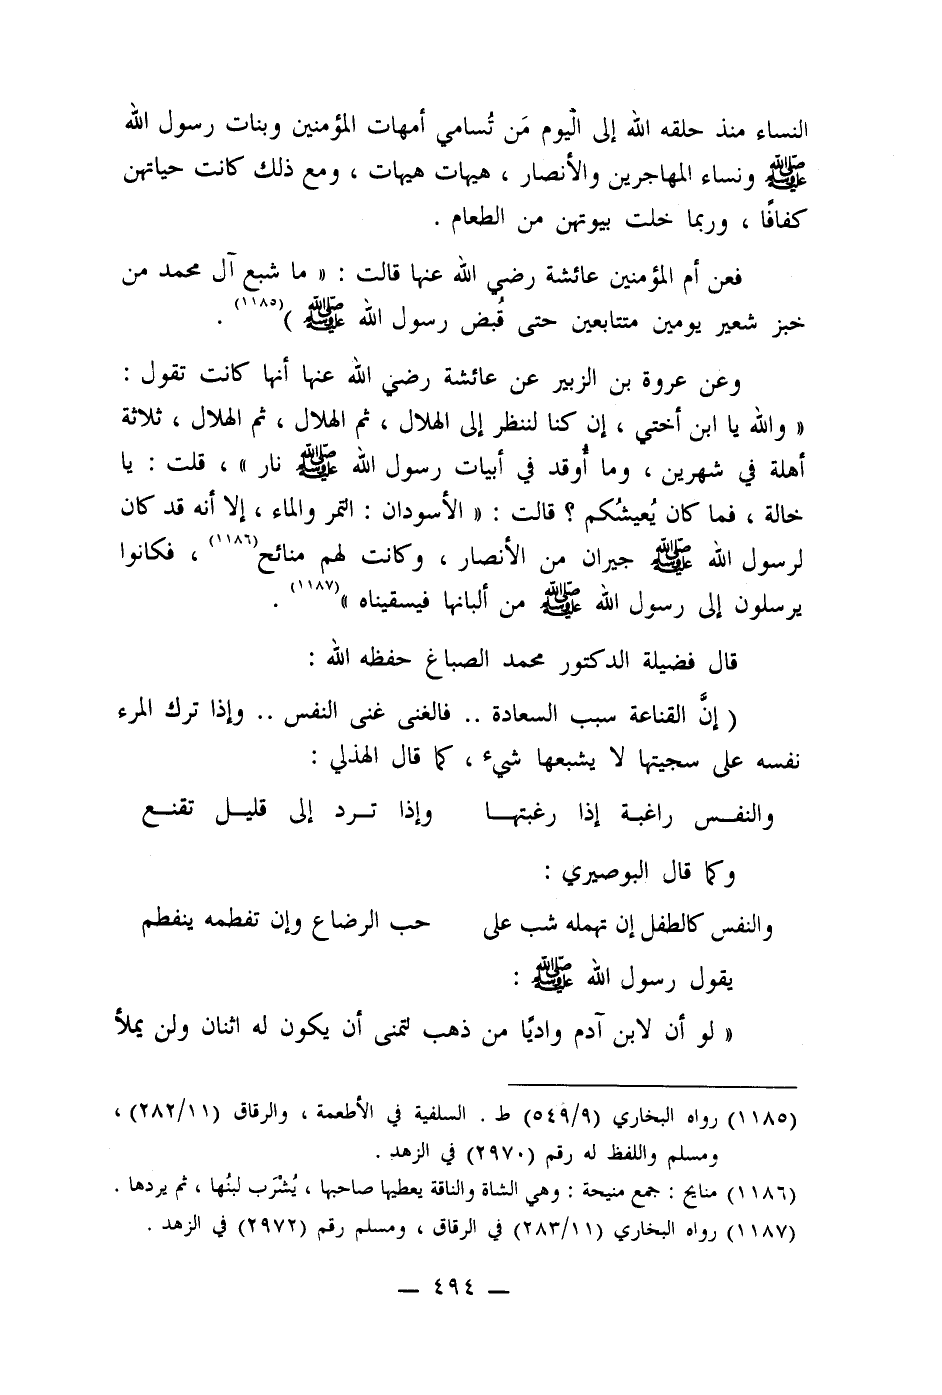 النساء منذ حلقه الله إلى الْيوم مَن تُسامي أمهات المؤمنين وبنات رسول الله
ﷺ ونساء المهاجرين والأنصار ، هيهات هيهات ، ومع ذلك كانت حياتهن
كفافًا ، وربما خلت بيوتهن من الطعام .
فعن أم المؤمنين عائشة رضي الله عنها قالت : « ما شبع آل محمد من
خبز شعير يومين متتابعين حتى قُبض رسول الله ﷺ )(١١٨٥) .
وعن عروة بن الزبير عن عائشة رضي الله عنها أنها كانت تقول :
« والله يا ابن أختي ، إن كنا لننظر إلى الهلال ، ثم الهلال ، ثم الهلال ، ثلاثة
أهلة في شهرين ، وما أُوقد في أبيات رسول الله ﷺ نار » ، قلت : يا
خالة ، فما كان يُعيشُكم ؟ قالت : « الأسودان : التمر والماء ، إلا أنه قد كان
لرسول الله ﷺ جيران من الأنصار ، وكانت لهم منائح(١١٨٦) ، فكانوا
يرسلون إلى رسول الله ﷺ من ألبانها فيسقيناه »(١١٨٧) .
قال فضيلة الدكتور محمد الصباغ حفظه الله :
( إنَّ القناعة سبب السعادة .. فالغنى غنى النفس .. وإذا ترك المرء
نفسه على سجيتها لا يشبعها شيء ، كما قال الهذلي :
والنفـس راغبـة إذا رغبتهـا وإذا تـرد إلى قليـل تقنـع
وكما قال البوصيري :
والنفس كالطفل إن تهمله شب على حب الرضاع وإن تفطمه ينفطم
يقول رسول الله ﷺ :
« لو أن لابن آدم واديًا من ذهب لتمنى أن يكون له اثنان ولن يملأ
(١١٨٥) رواه البخاري (٥٤٩/٩) ط . السلفية في الأطعمة ، والرقاق (٢٨٢/١١) ،
ومسلم واللفظ له رقم (٢٩٧٠) في الزهد .
(١١٨٦) منايح : جمع منيحة : وهي الشاة والناقة يعطيها صاحبها ، يُشْرَب لبنُها ، ثم يردها .
(١١٨٧) رواه البخاري (٢٨٣/١١) في الرقاق ، ومسلم رقم (٢٩٧٢) في الزهد .
— ٤٩٤ —